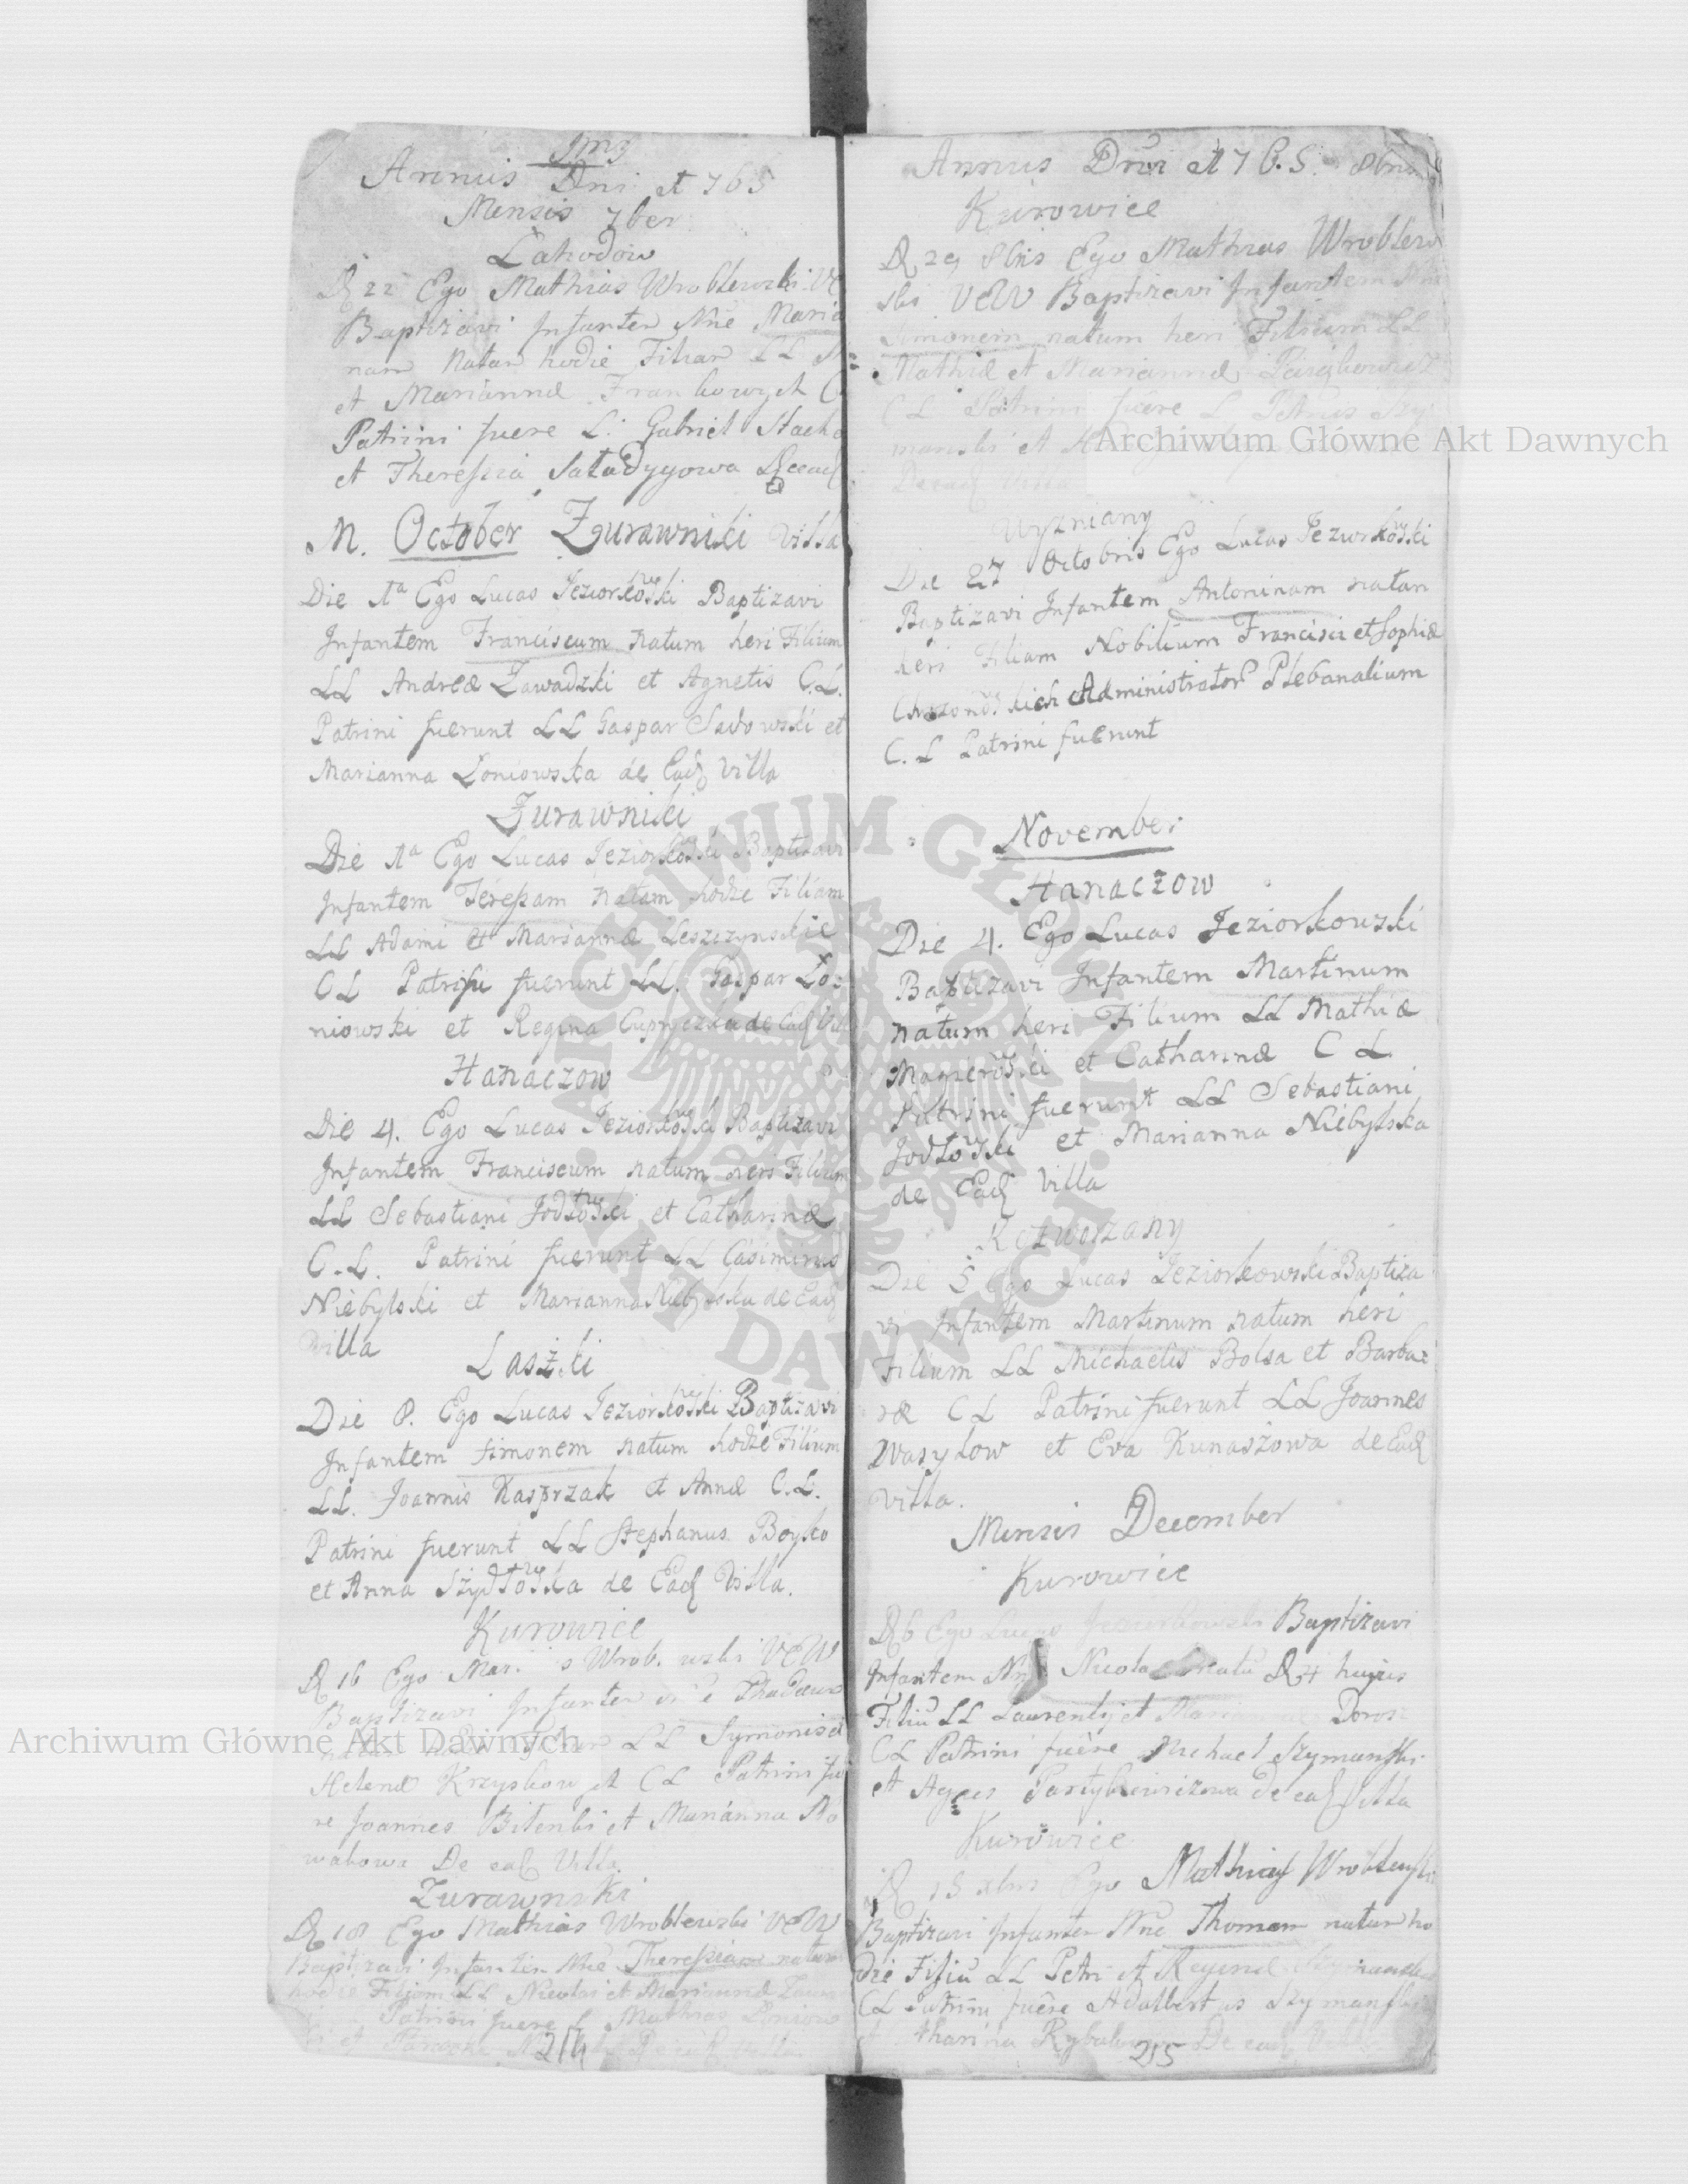 Annus Dni 1765
Mensis 7ber
Lahodow
D 22 Ego Mathias Wroblewski
Baptizavi Infantem Nne Maria
nam Natam hodie Filiam LL
et Mariannæ Frankowych C
Patrini fuere L. Gabriel Stach
et Theressia Saladygowa
M. October Zurawniki Villa
Die 1a Ego Lucas Jeziorkowski Baptizavi
Infantem Franciscum natum heri Filium
LL Andreæ Zawadzki et Agnetis C.L.
Patrini fuerunt LL Gaspar Sadowski et
Marianna Loniowska de Ead Villa
Zurawniki
Die 1a Ego Lucas Jeziorkowski Baptizavi
Infantem Teressam natam hodie Filiam
LL Adami et Mariannæ Leszczynskie
CL Patrini fuerunt LL. Gaspar Lo=
niowski et Regina Cupryczka de Ead Vill
Hanaczow
Die 4. Ego Lucas Jeziorkowski Baptizavi
Infantem Franciscum natum heri Filium
LL Sebastiani Jodłowski et Catharinæ
C.L. Patrini fuerunt LL Casimirus
Niebylski et Marianna Niebylska de Ead
Villa
Laszki
Die 8. Ego Lucas Jeziorkowski Baptizavi
Infantem Simonem natum hodie Filium
LL. Joannis Kasprzak et Annæ C.L.
Patrini fuerunt LL Stephanus Boyko
et Anna Szydłowska de Ead Villa.
Kurowice
D 16 Ego VCW
Baptizavi Infantem
LL Symonis et
Helenæ Krzyskow et CL Patrini fue
re Joannes Bilenki et Marianna No
wakowa De ead Villa
Zurawniki
D 18 Ego Mathias Wroblewski VCW
Baptizavi Infantem Nne Theressiam natam
hodie Filiam LL Nicolai et Mariannæ
Patrini fuere L Mathias Loniow
214
Annus Dni 176.5. 8bris
Kurowice
D 29 8bris Ego Mathias Wroblew
ski VCW Baptizavi Infantem
Simonem natum heri Filium LL
Mathiæ et Mariannæ
CL Patrini fuere L Petrus Szy
manski et
De ead Villa
Wyzniany
Die 27 Octobris Ego Lucas Jeziorkowski
Baptizavi Infantem Antoninam natam
heri Filiam Nobilium Francisci et Sophiæ
Administrator Plebanalium
C.L Patrini fuerunt
November
Hanaczow
Die 4. Ego Lucas Jeziorkowski
Baptizavi Infantem Martinum
natum heri Filium LL Mathiæ
Magierowski et Catharinæ C L
Patrini fuerunt LL Sebastiani
Jodłowski et Marianna Niebylska
de Ead Villa
Die 5 Ego Lucas Jeziorkowski Baptiza
vi Infantem Martinum natum heri
Filium LL Michaelis Bolsa et Barba=
ræ CL Patrini fuerunt LL Joannes
Wasylow et Eva Kunaszowa de Ead
Villa.
Mensis December
Kurowice
D 6 Ego Lucas Jeziorkowski Baptizavi
Infantem natu D 4 hujus
Filiu LL Laurentij et Mariannæ Doros
CL Patrini fuere Michael Szymanski
et Agnes de ead Villa
Kurowice
D 18 Ego Mathias Wroblewski
Baptizavi Infantem Nne Thomam natum ho
die Filiu LL Petri et Reginæ
CL Patrini fuere Adalbertus Szymanski
Rybakowa De ead Villa
215
Archiwum Główne Akt Dawnych
Archiwum Główne Akt Dawnych
ARCHIWUM GŁÓWNE
AKT DAWNYCH